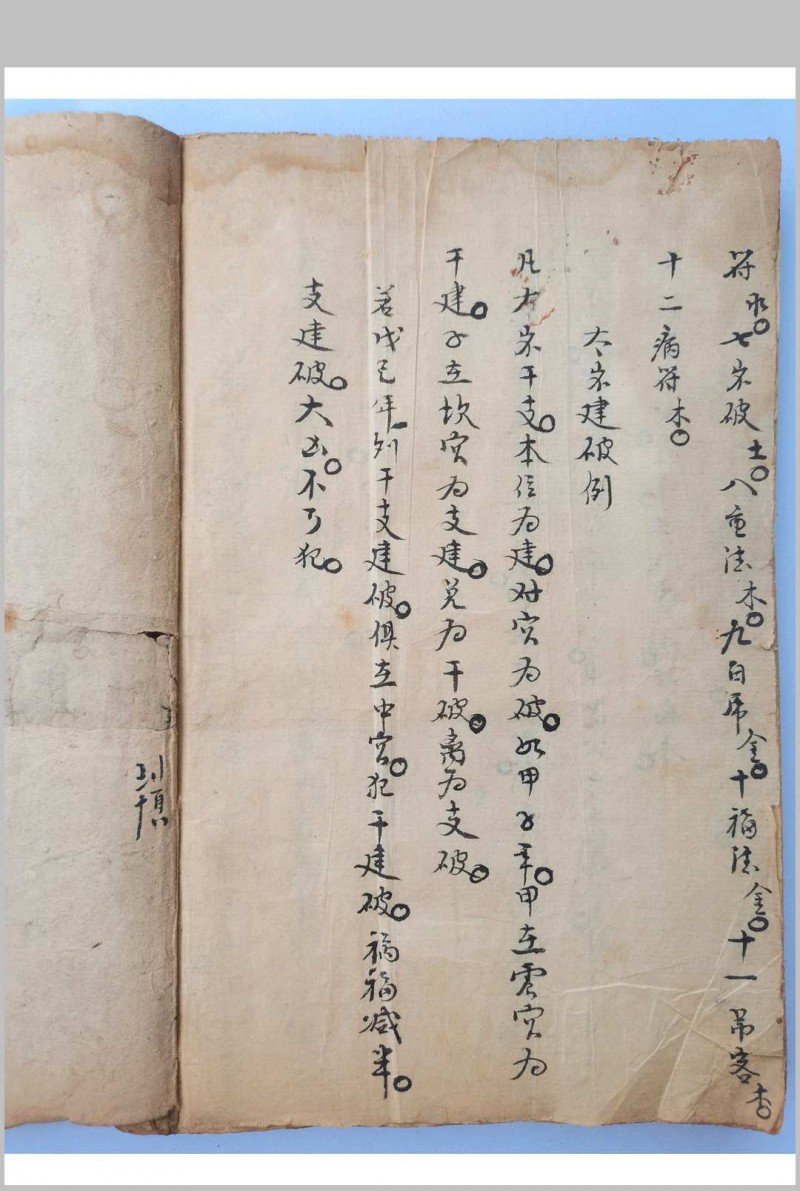 符水。七岁破土。八重德木。九白虎金。十福德金。十一吊客木。
十二病符木。
太岁建破例
凡太岁干支。本位为建。对宫为破。如甲子年。甲在震宫为
干建。子在坎宫为支建。兑为干破。离为支破。
若戊己年列干支建破。俱在中宫。犯干建破。祸福减半。
支建破。大凶。不可犯。